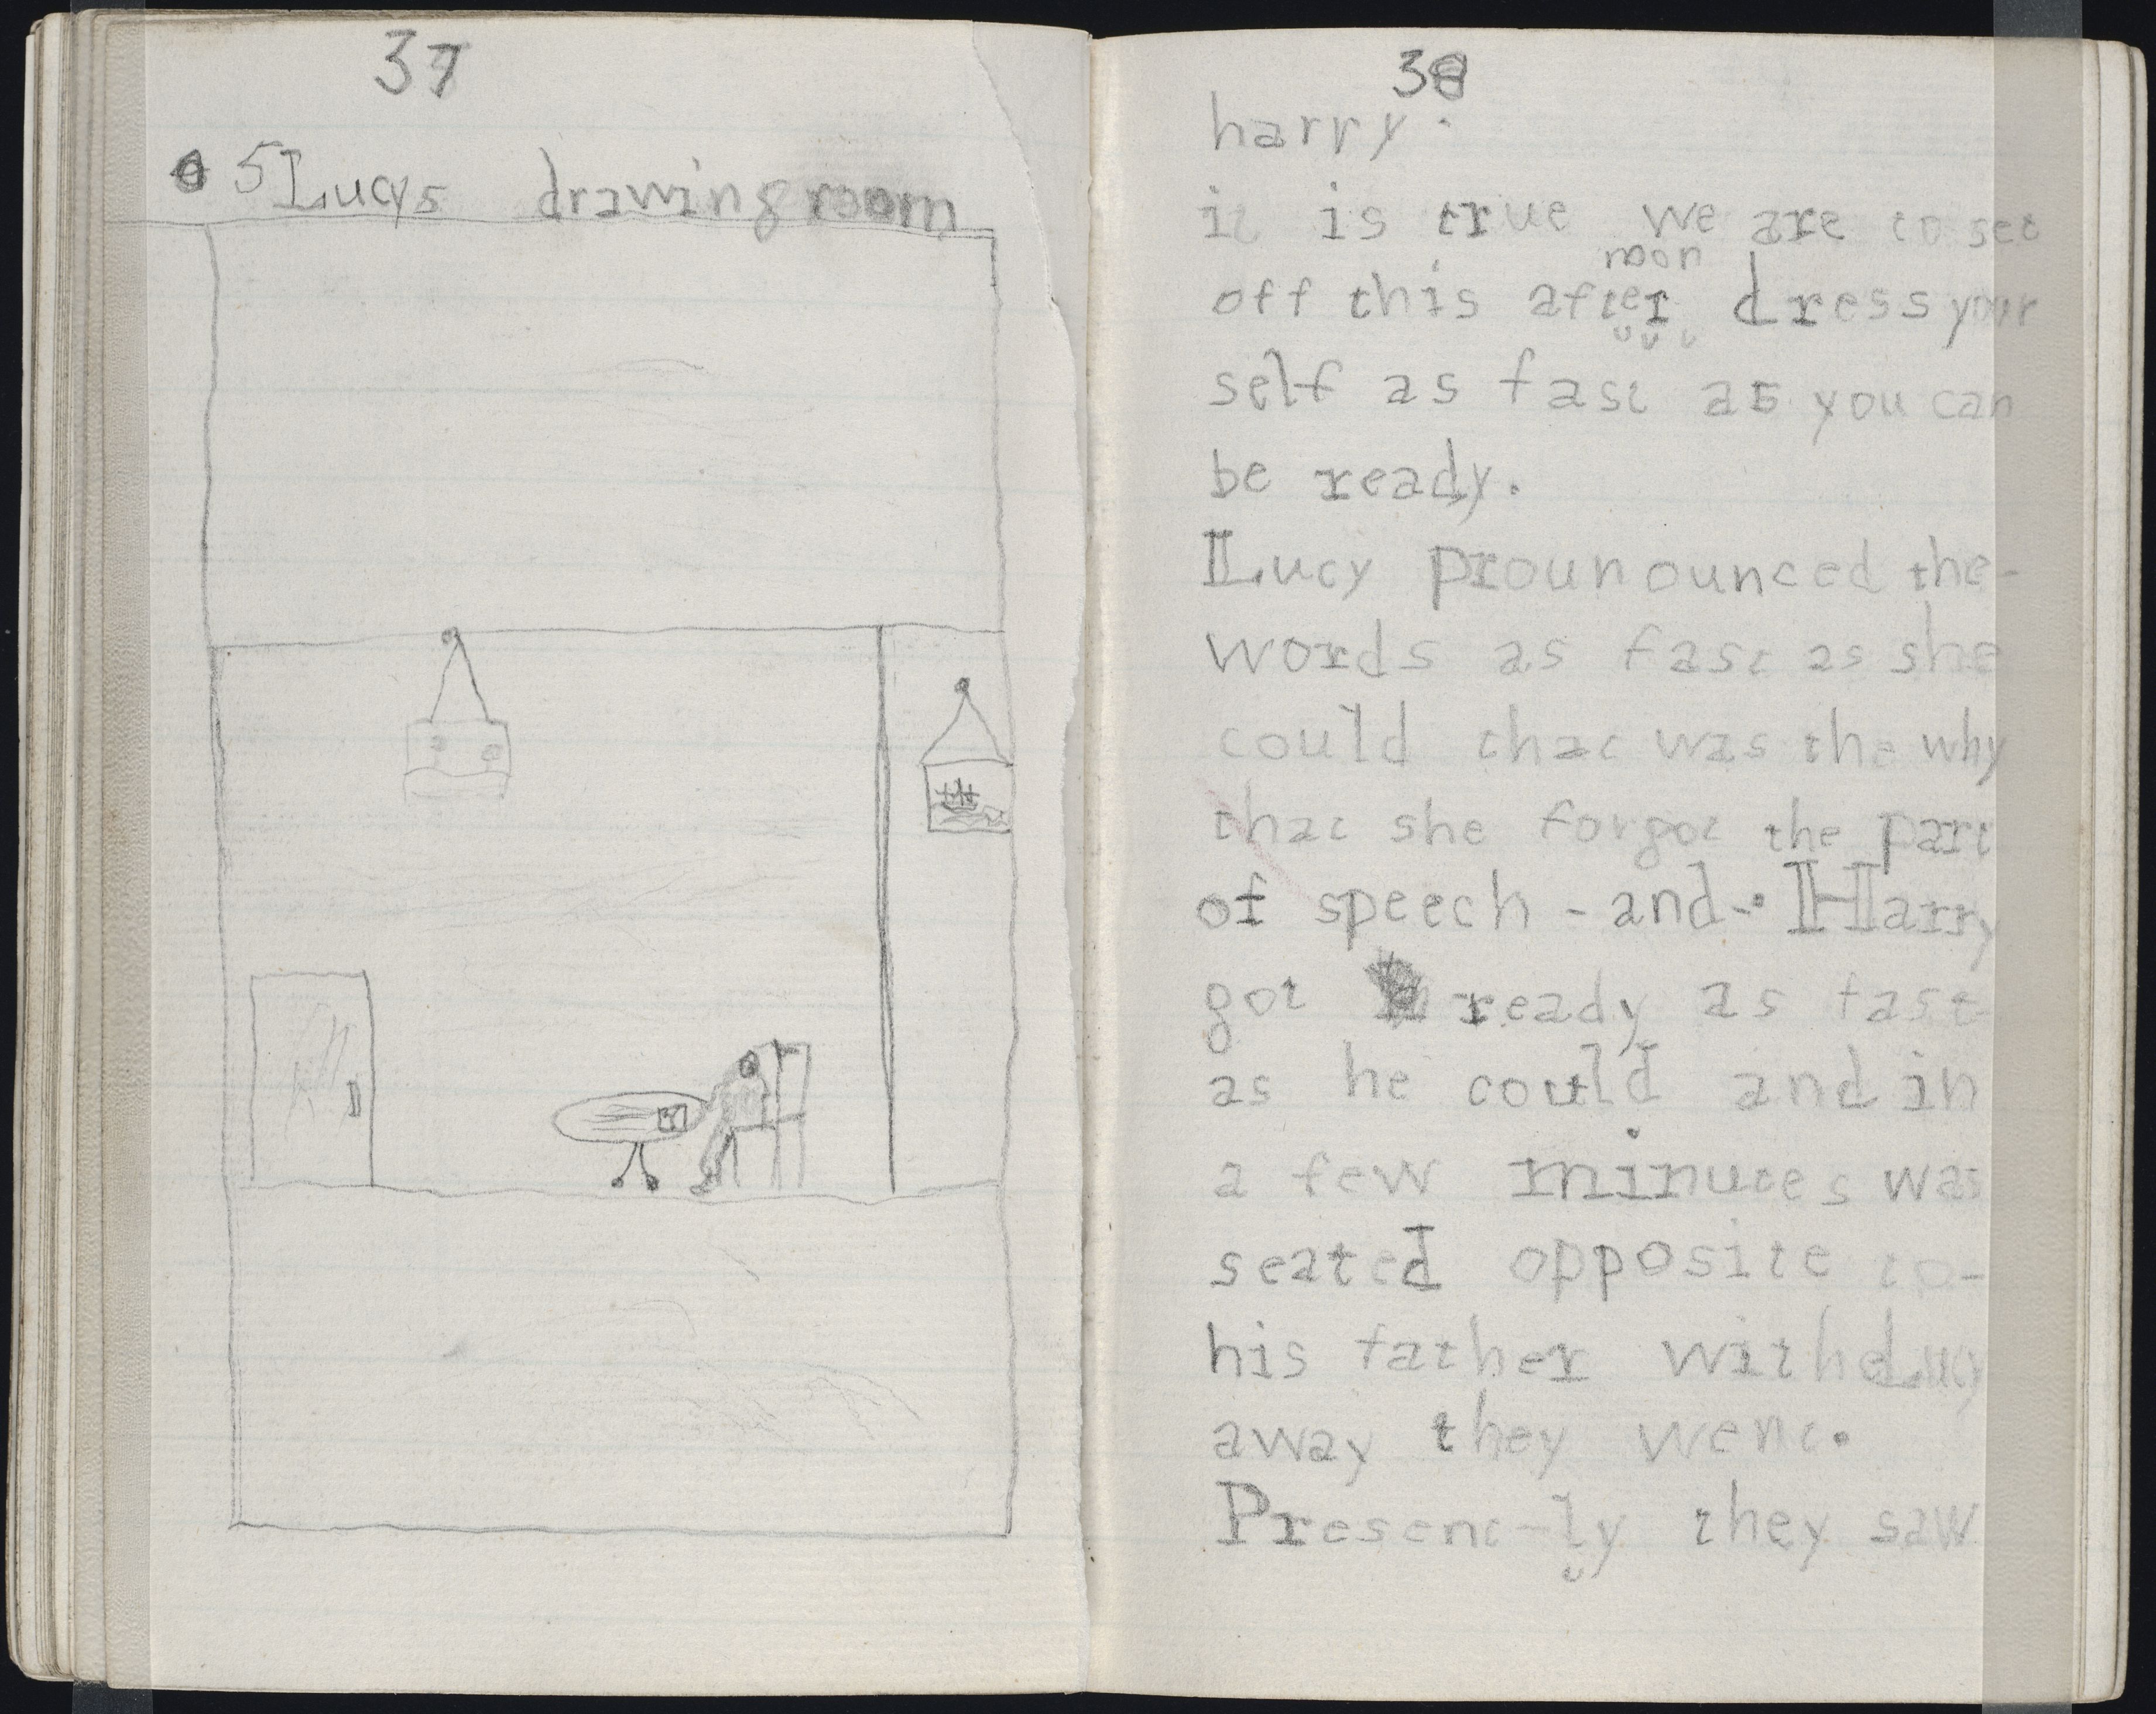 37
5 Lucys drawing room
38
harry.
it is true we are to set
noon
off this after dress your
self as fast as you can
be ready.
Lucy prounounced the-
words as fast as she
could that was the why
that she forgot the part
of speech - and - Harry
got ready as fast
as he could and in
a few minutes was
seated opposite to-
his father with Lucy
away they went.
Present-ly they saw